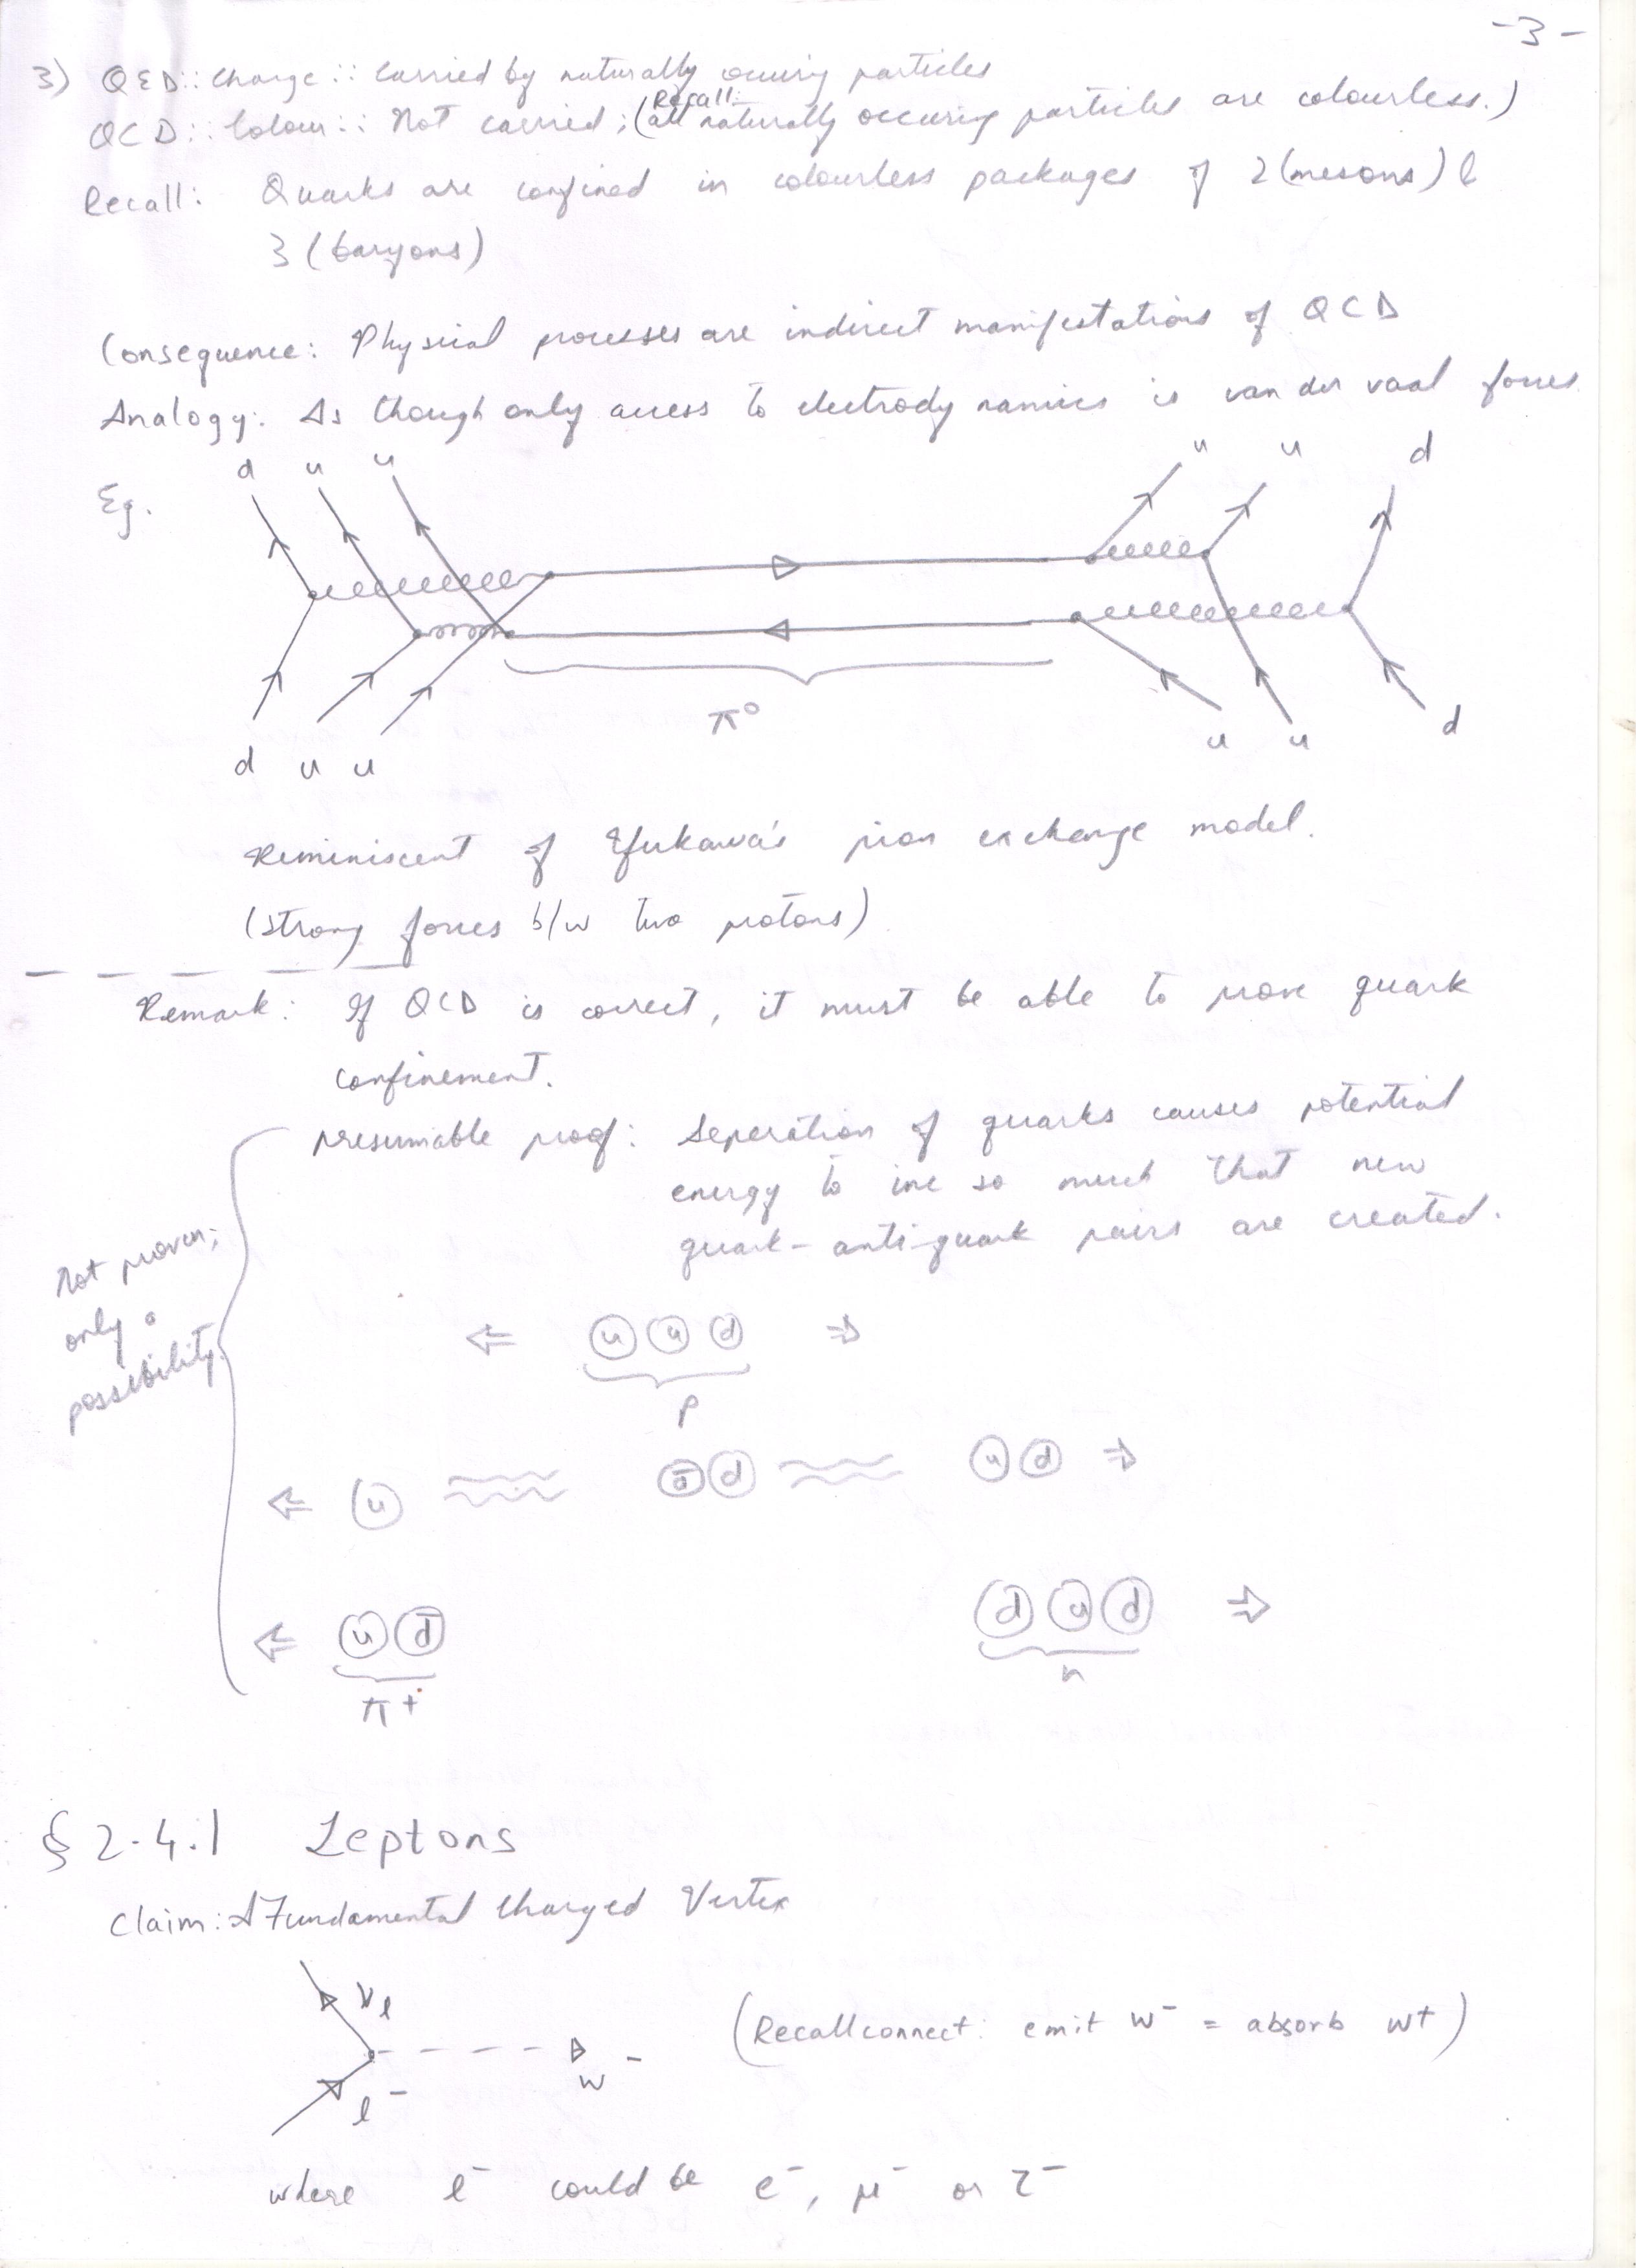 -3-
3) QED:: Charge:: Carried by naturally occuring particles
QCD:: Colour:: Not carried; (all naturally occuring particles are colourless.)
Recall:
Recall: Quarks are confined in colourless packages of 2(mesons) &
3 (baryons)
Consequence: Physical processes are indirect manifestations of QCD
Analogy: As though only access to electrodynamics is van der vaal forces.
Eg.
d u u u u d
π⁰
d u u u u d
Reminiscent of Yukawa's pion exchange model.
(strong forces b/w two protons)
Remark: If QCD is correct, it must be able to prove quark
confinement.
presumable proof: Seperation of quarks causes potential
energy to inc so much that new
quark-anti-quark pairs are created.
Not proven;
only a
possibility.
⇐ u u d ⇒
p
⇐ u d̄ d u d ⇒
⇐ u d̄ d u d ⇒
π+ n
§ 2.4.1 Leptons
Claim: A Fundamental Charged Vertex
νₗ
(Recall connect: emit W⁻ = absorb W⁺)
W⁻
l⁻
where l⁻ could be e⁻, μ⁻ or τ⁻